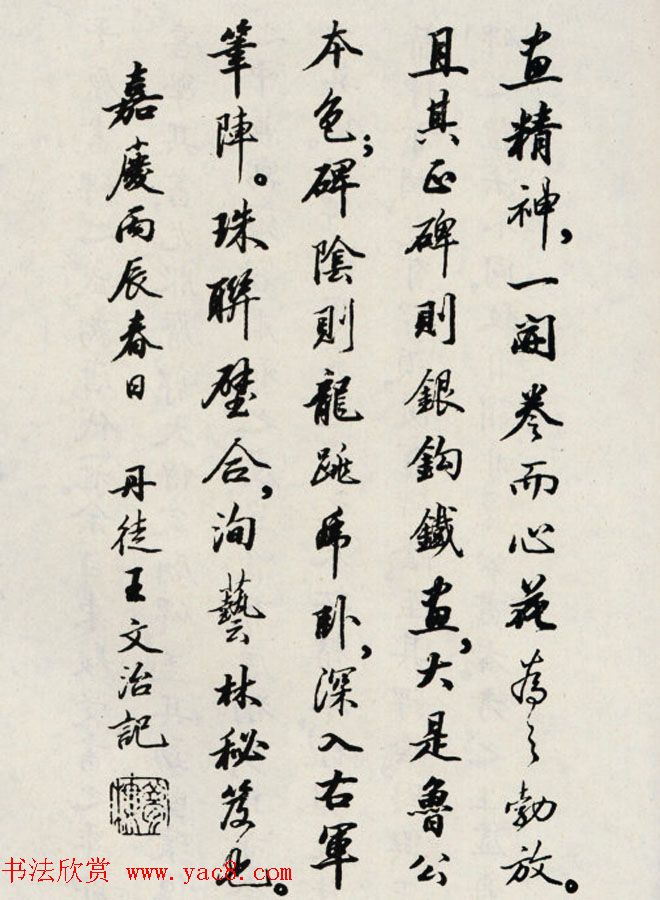 画精神，一開卷而心花為之勃放。
且其正碑則銀鈎鐵画，大是魯公
本色；碑陰則龍跳乕卧，深入右軍
筆陣。珠聯璧合，洵藝林秘笈也。
嘉慶丙辰春日 丹徒王文治記
书法欣赏 www.yac8.com